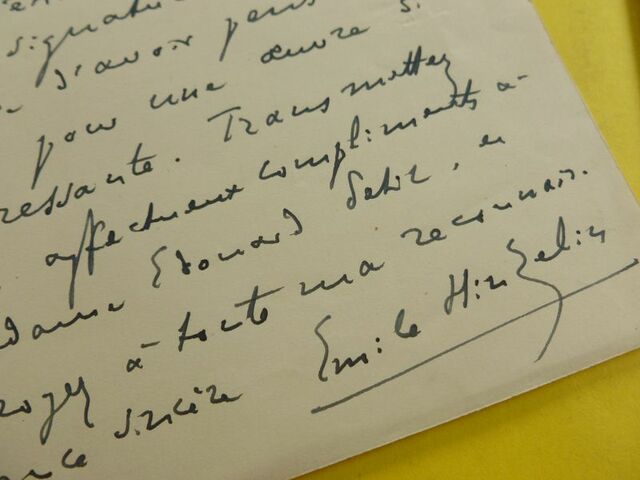 signatu
d'avoir pens
pour une œuvre si
ressante. Transmettez
affectueux compliments à
dame Edouard
royez à toute ma reconnais.
ance sincère Emile Hinzelin